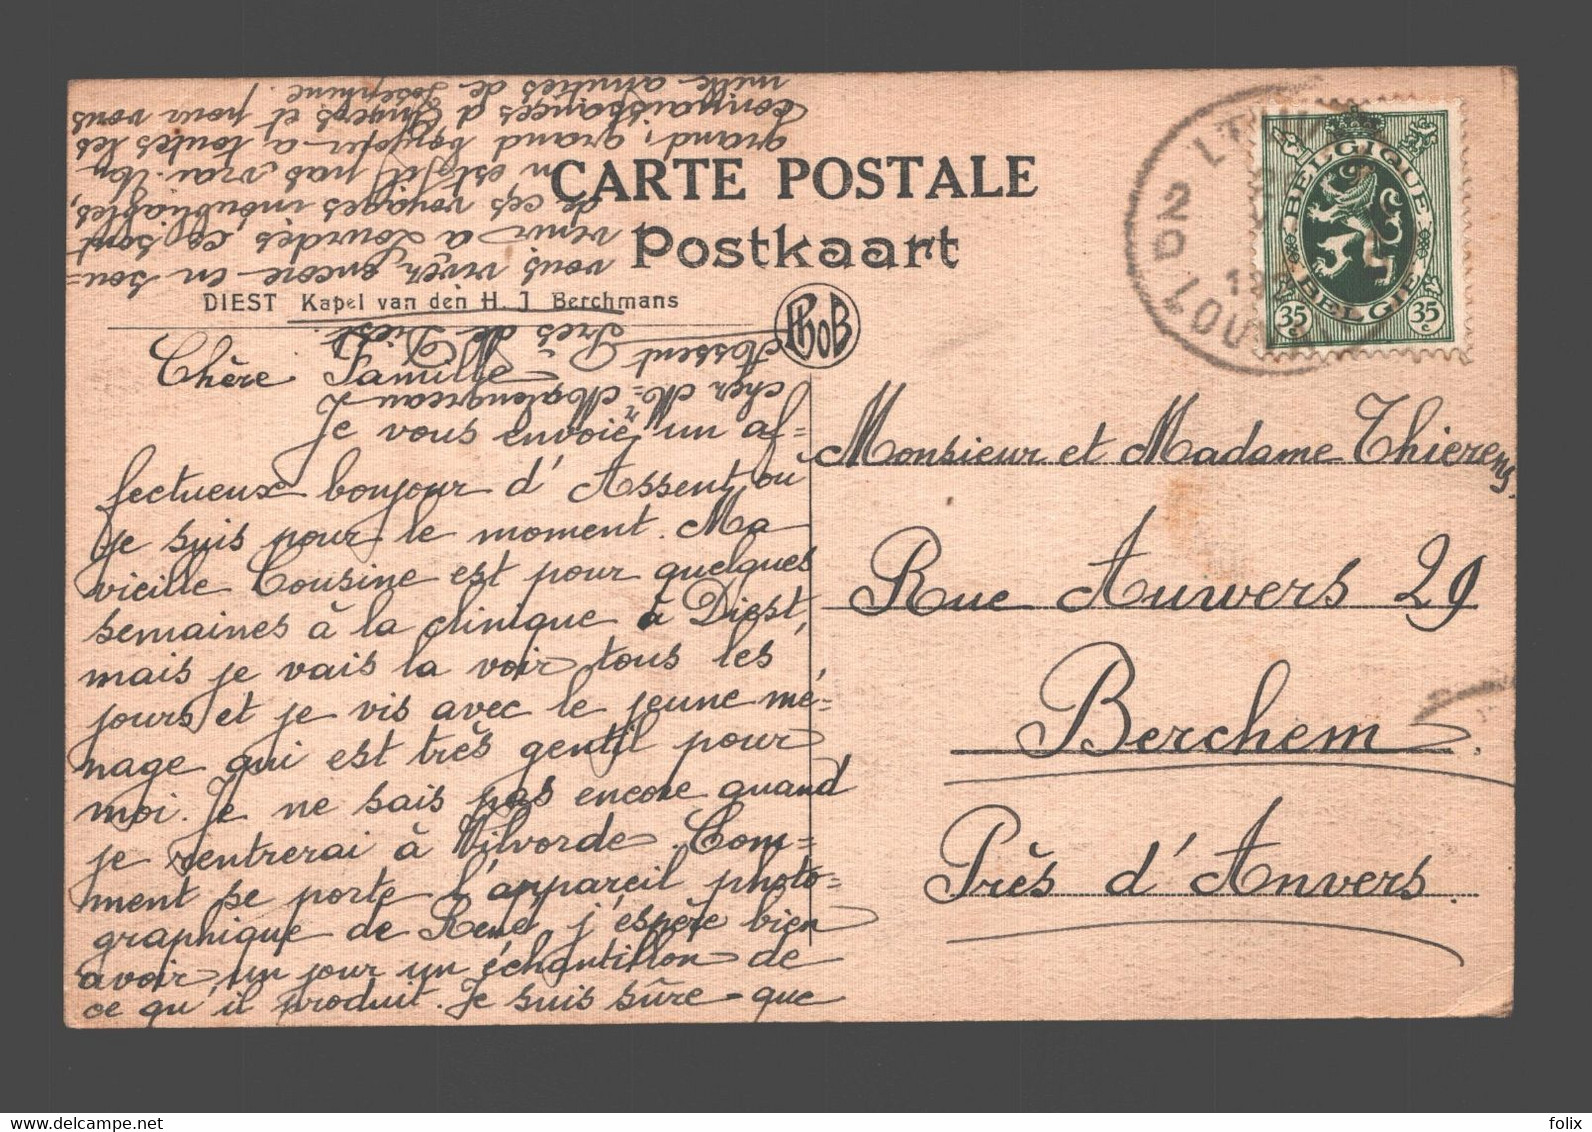 CARTE POSTALE
Postkaart
DIEST Kapel van den H. J Berchmans
PhoB
BELGIQUE
BELGIE
35c 35c
Chère Famille
Je vous envoie un af=
fectueux bonjour d'Assent où
je suis pour le moment. Ma
vieille Cousine est pour quelques
semaines à la clinique à Diest,
mais je vais la voir tous les
jours et je vis avec le jeune mé=
nage qui est très gentil pour
moi. Je ne sais pas encore quand
je rentrerai à Vilvorde. Com=
ment se porte l'appareil photo=
graphique de René, j'espère bien
avoir un jour un échantillon de
ce qu'il produit. Je suis sûre que
cher Mr Malengreau
Assent
Près de Diest.
vous vivez encore en sou=
venir à Lourdes ce sont
de ces voyages inoubliables,
n'est-ce pas vrai. Un
grand, grand bonjour à toutes les
connaissances d'Anvers et pour vous
mille amitiés de Joséphine.
Monsieur et Madame Thierens
Rue Anvers 29
Berchem.
Près d'Anvers.